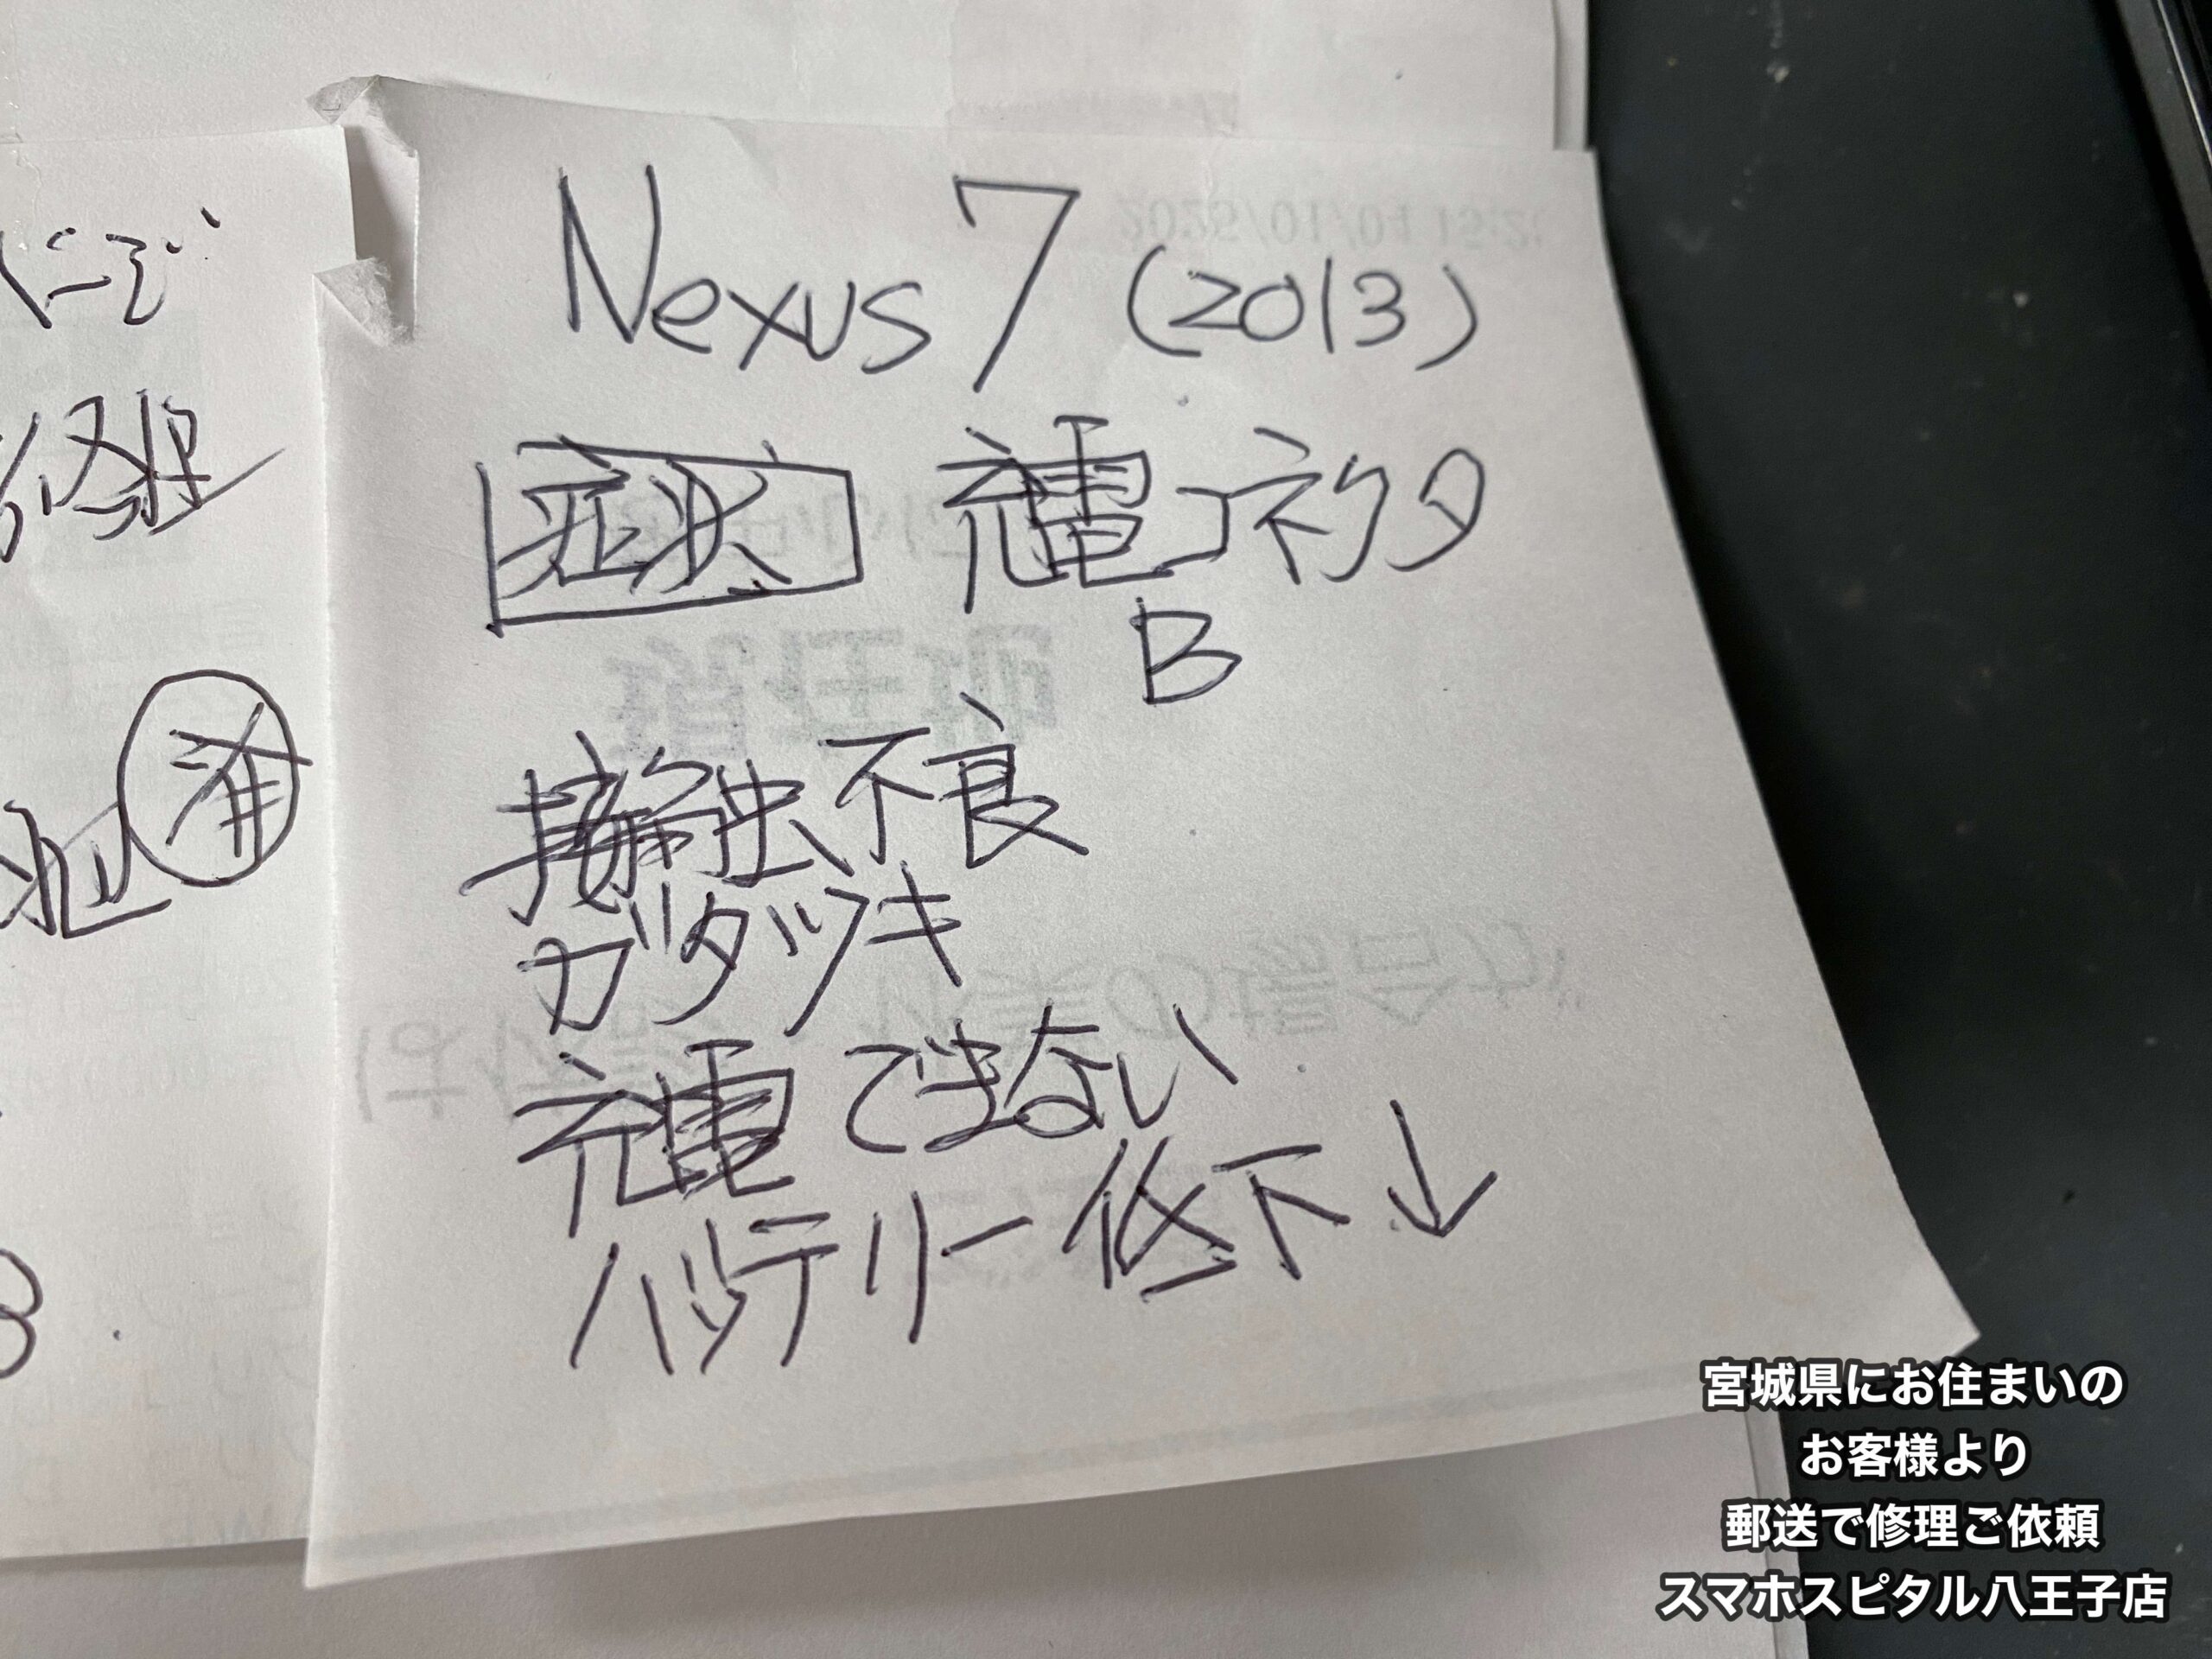 Nexus 7 (2013)
症状 充電コネクタ
B
接触不良
ガタツキ
充電できない
バッテリー低下↓
宮城県にお住まいの
お客様より
郵送で修理ご依頼
スマホスピタル八王子店